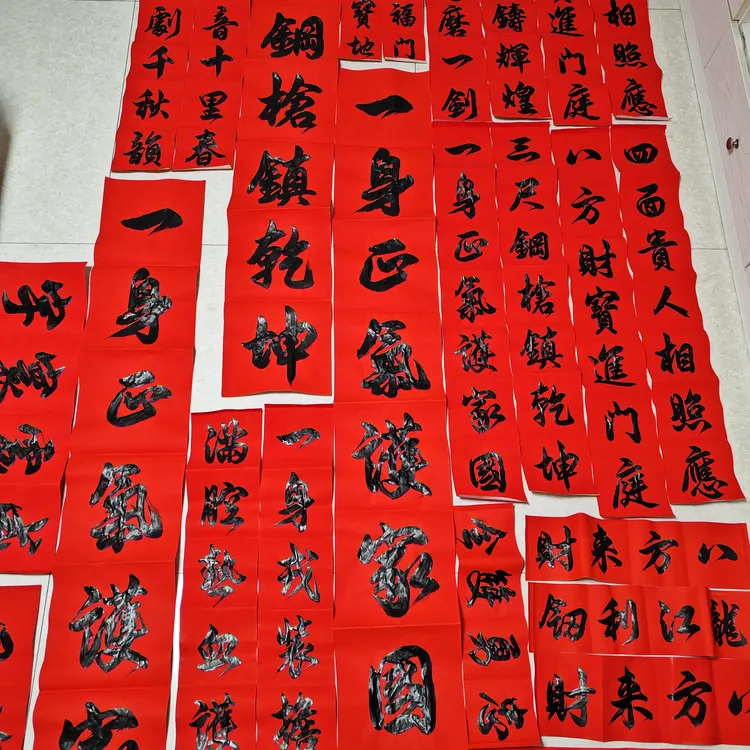 相照應
進門庭
鑄輝煌
磨一劍
福門
寶地
鋼槍鎮乾坤
音十里春
劇千秋韻
四面貴人相照應
八方財寶進門庭
三尺鋼槍鎮乾坤
一身正氣護家國
一身正氣護家國
一身正氣護家
一身戎裝擔
滿腔熱血護
八方来財
龍江利
八方来財